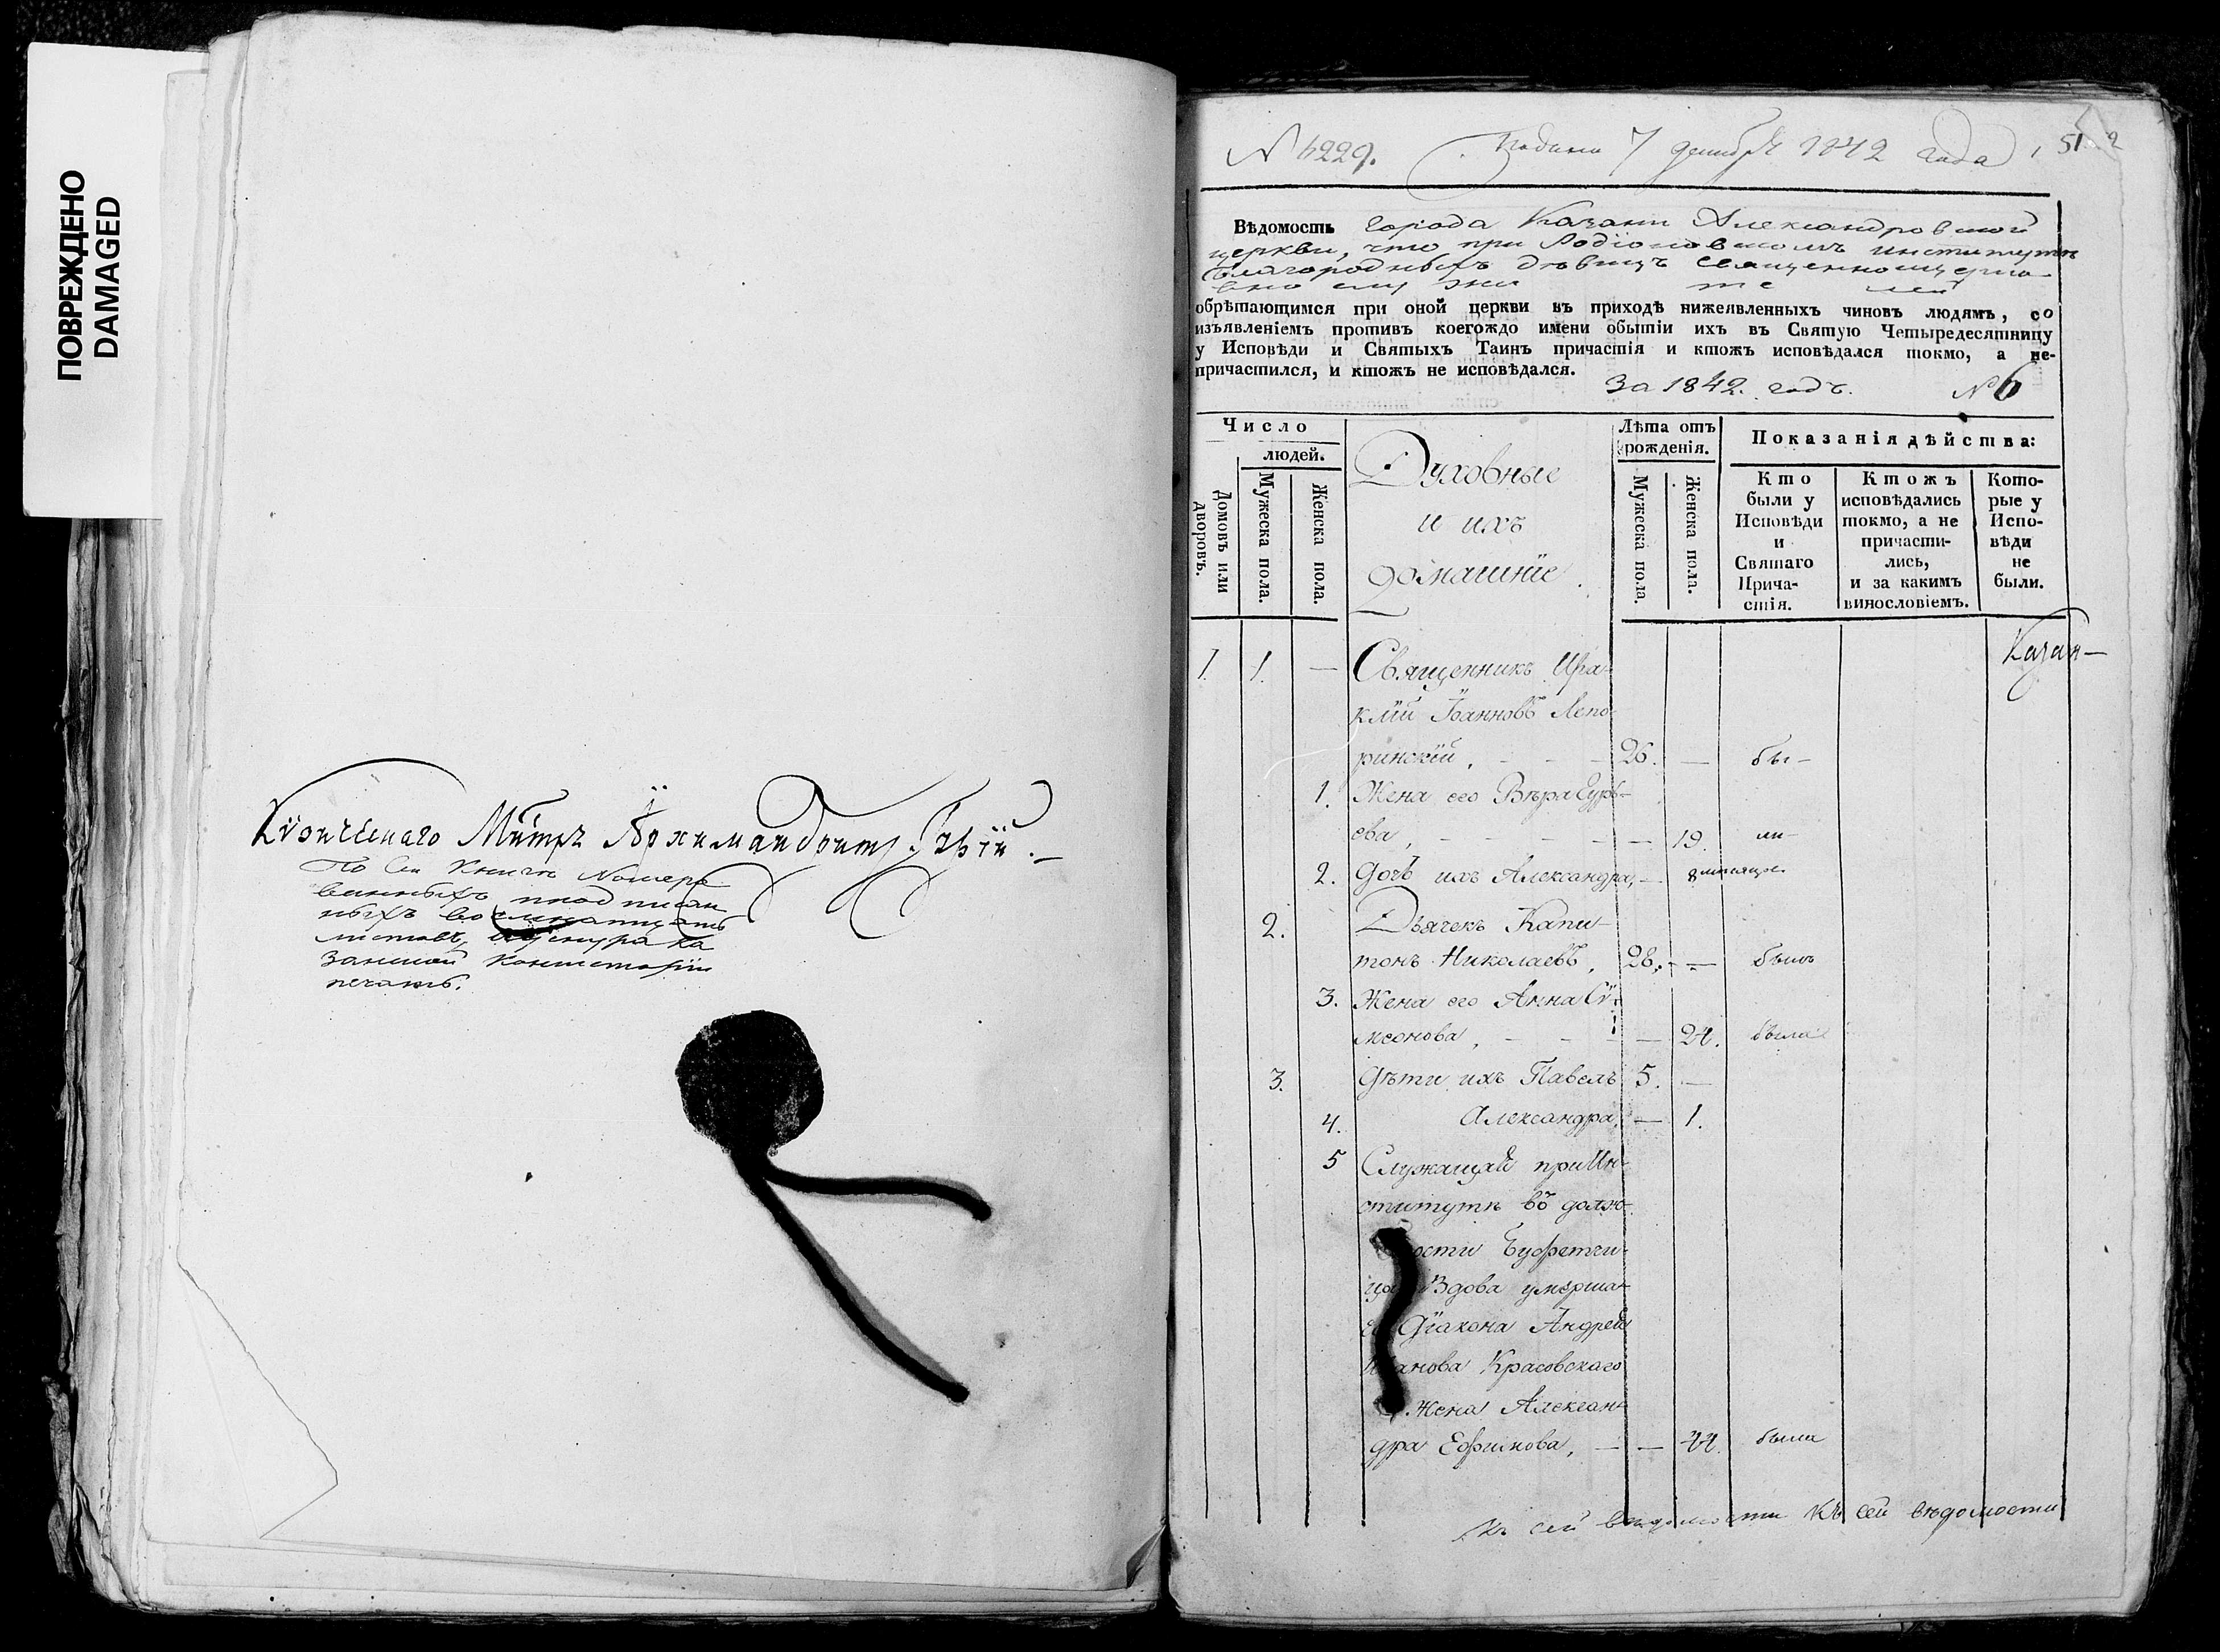 ПОВРЕЖДЕНО
DAMAGED
Архимандритъ
По сей книгѣ Номеро
ванныхъ
листовъ,
занской Консисторіи
печать.
N 4229. Подана 7 декабря 1842 года 51
Вѣдомость города Казани Александровской
церкви, что при Родіоновскомъ институтѣ
благородныхъ дѣвицъ священноцерко-
вно служителей
обрѣтающимся при оной церкви въ приходѣ нижеявленныхъ чиновъ людямъ, со
изъявленіемъ противъ коегождо имени обытіи ихъ въ Святую Четыредесятницу
у Исповѣди и Святыхъ Таинъ причастія и ктожъ исповѣдался токмо, а не-
причастился, и ктожъ не исповѣдался.
За 1842. годъ. N 6
Число
людей.
Домовъ или дворовъ.
Мужеска пола.
Женска пола.
Духовные
и ихъ
домашніе.
Лѣта отъ
рожденія.
Мужеска пола.
Женска пола.
Показанія дѣйства:
Кто
были у
Исповѣди
и
Святаго
Прича-
стія.
Ктожъ
исповѣдались
токмо, а не
причасти-
лись,
и за какимъ
винословіемъ.
Кото-
рые у
Испо-
вѣди
не
были.
1. 1. — Священникъ Ира- Казан-
клій Іоанновъ Лепо-
ринскій, - - - 26. — бы-
1. Жена его Вѣра Гурь-
ева, - - - — 19. ли-
2. Дочь ихъ Александра, — 8 мѣсяце.
2. Дьячекъ Капи-
тонъ Николаевъ, 28. — былъ
3. Жена его Анна Си-
меонова, - - - — 24. была
3. Дѣти ихъ Павелъ 5. —
4. Александра, — 1.
5 Служащая при Ин-
ститутѣ въ долж-
ности Буфетчи-
цы Вдова умерша-
Діакона Андрея
Иванова Красовскаго
Жена Алексан-
дра Ефимова, — — 44. была
Къ сей вѣдомости Къ сей вѣдомости